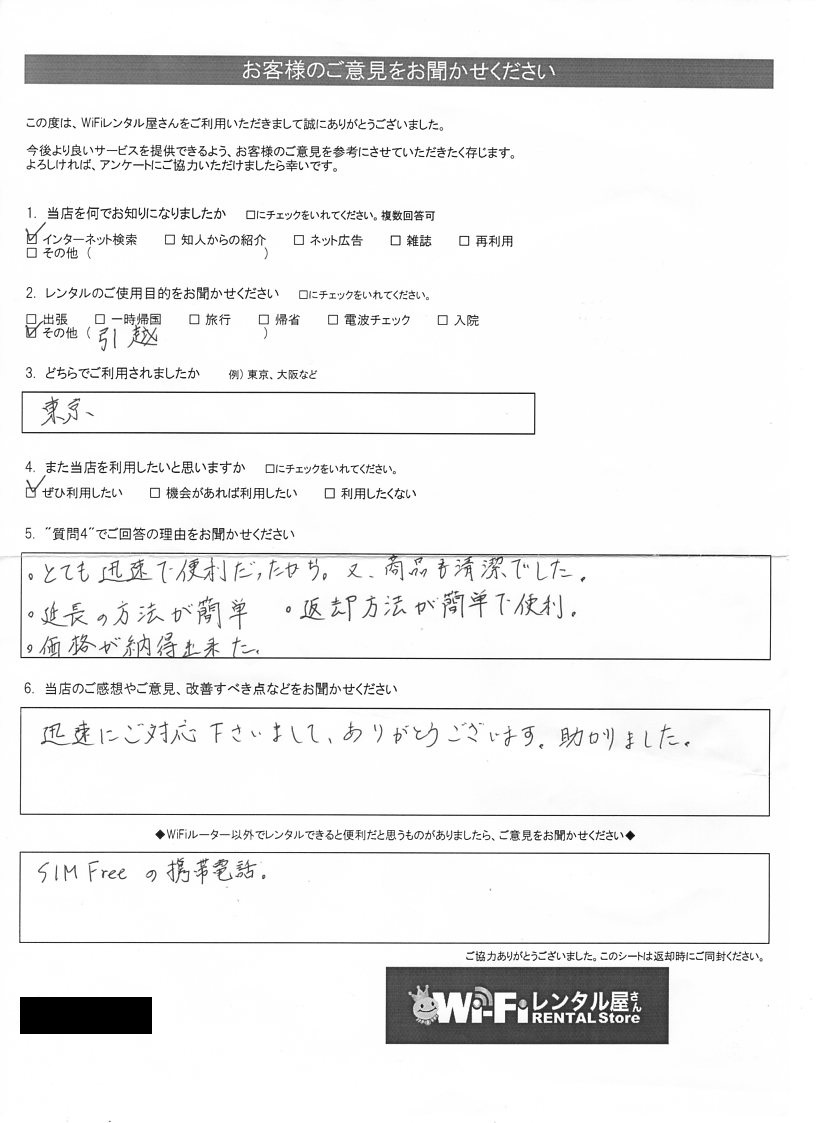 お客様のご意見をお聞かせください
この度は、WiFiレンタル屋さんをご利用いただきまして誠にありがとうございました。
今後より良いサービスを提供できるよう、お客様のご意見を参考にさせていただきたく存じます。
よろしければ、アンケートにご協力いただけましたら幸いです。
1. 当店を何でお知りになりましたか □にチェックをいれてください。複数回答可
☑ インターネット検索 □ 知人からの紹介 □ ネット広告 □ 雑誌 □ 再利用
□ その他 ( )
2. レンタルのご使用目的をお聞かせください □にチェックをいれてください。
□ 出張 □ 一時帰国 □ 旅行 □ 帰省 □ 電波チェック □ 入院
☑ その他 ( 引越 )
3. どちらでご利用されましたか 例) 東京、大阪など
東京、
4. また当店を利用したいと思いますか □にチェックをいれてください。
☑ ぜひ利用したい □ 機会があれば利用したい □ 利用したくない
5. "質問4"でご回答の理由をお聞かせください
。とても迅速で便利だったから。又、商品も清潔でした。
。延長の方法が簡単 。返却方法が簡単で便利。
。価格が納得出来た。
6. 当店のご感想やご意見、改善すべき点などをお聞かせください
迅速にご対応下さいまして、ありがとうございます。助かりました。
◆WiFiルーター以外でレンタルできると便利だと思うものがありましたら、ご意見をお聞かせください◆
SIM Free の携帯電話。
ご協力ありがとうございました。このシートは返却時にご同封ください。
Wi-Fi レンタル屋さん
RENTAL Store